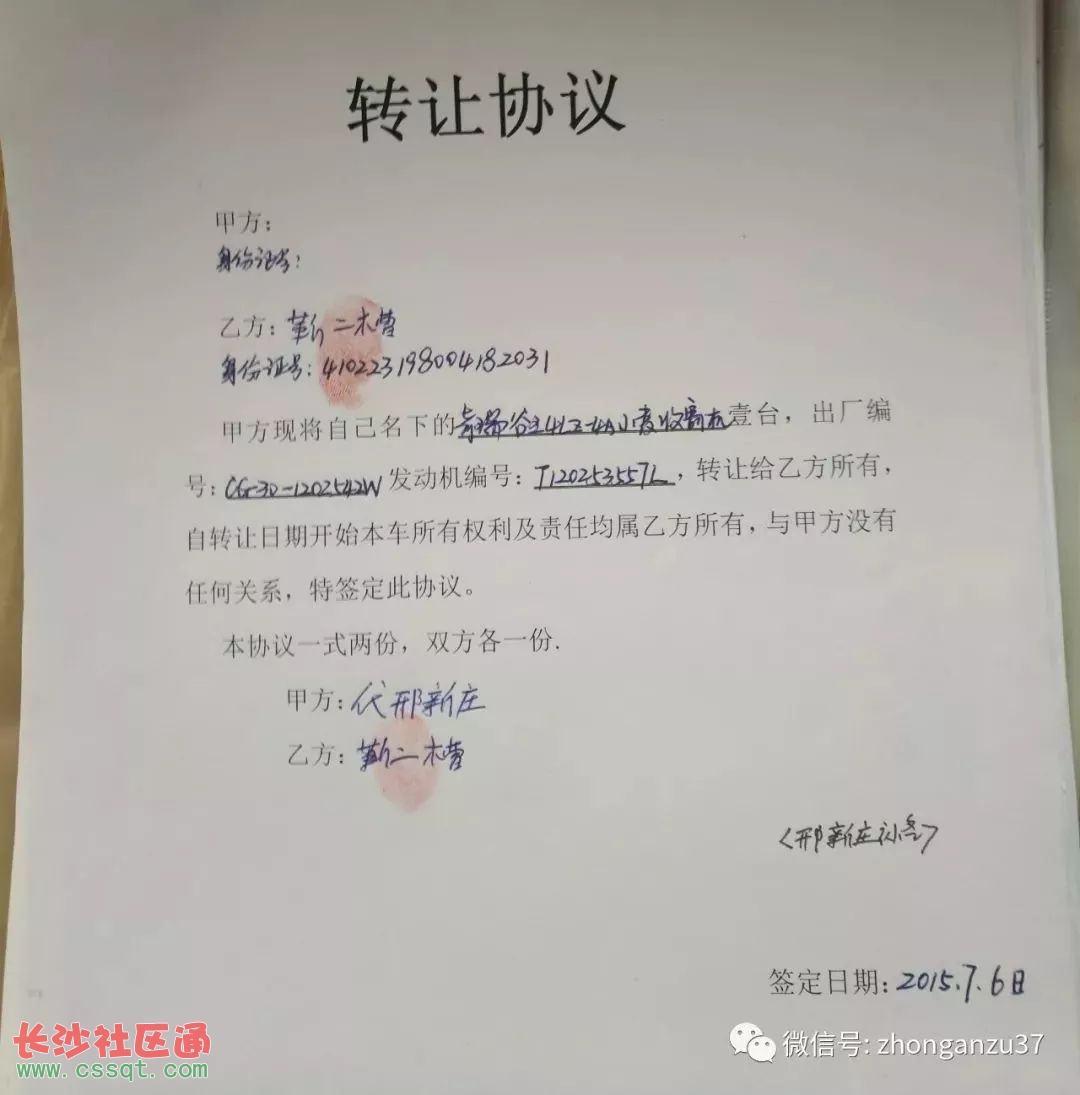 转让协议
甲方：
身份证号：
乙方：靳二木曹
身份证号：410223198004182031
甲方现将自己名下的奇瑞谷王4LZ-4A小麦收割机壹台，出厂编
号：CG-30-1202542W 发动机编号：T120253557L，转让给乙方所有，
自转让日期开始本车所有权利及责任均属乙方所有，与甲方没有
任何关系，特签定此协议。
本协议一式两份，双方各一份.
甲方：代邢新庄
乙方：靳二木曹
邢新庄
签定日期：2015.7.6日
长沙社区通
www.cssqt.com
微信号: zhonganzu37